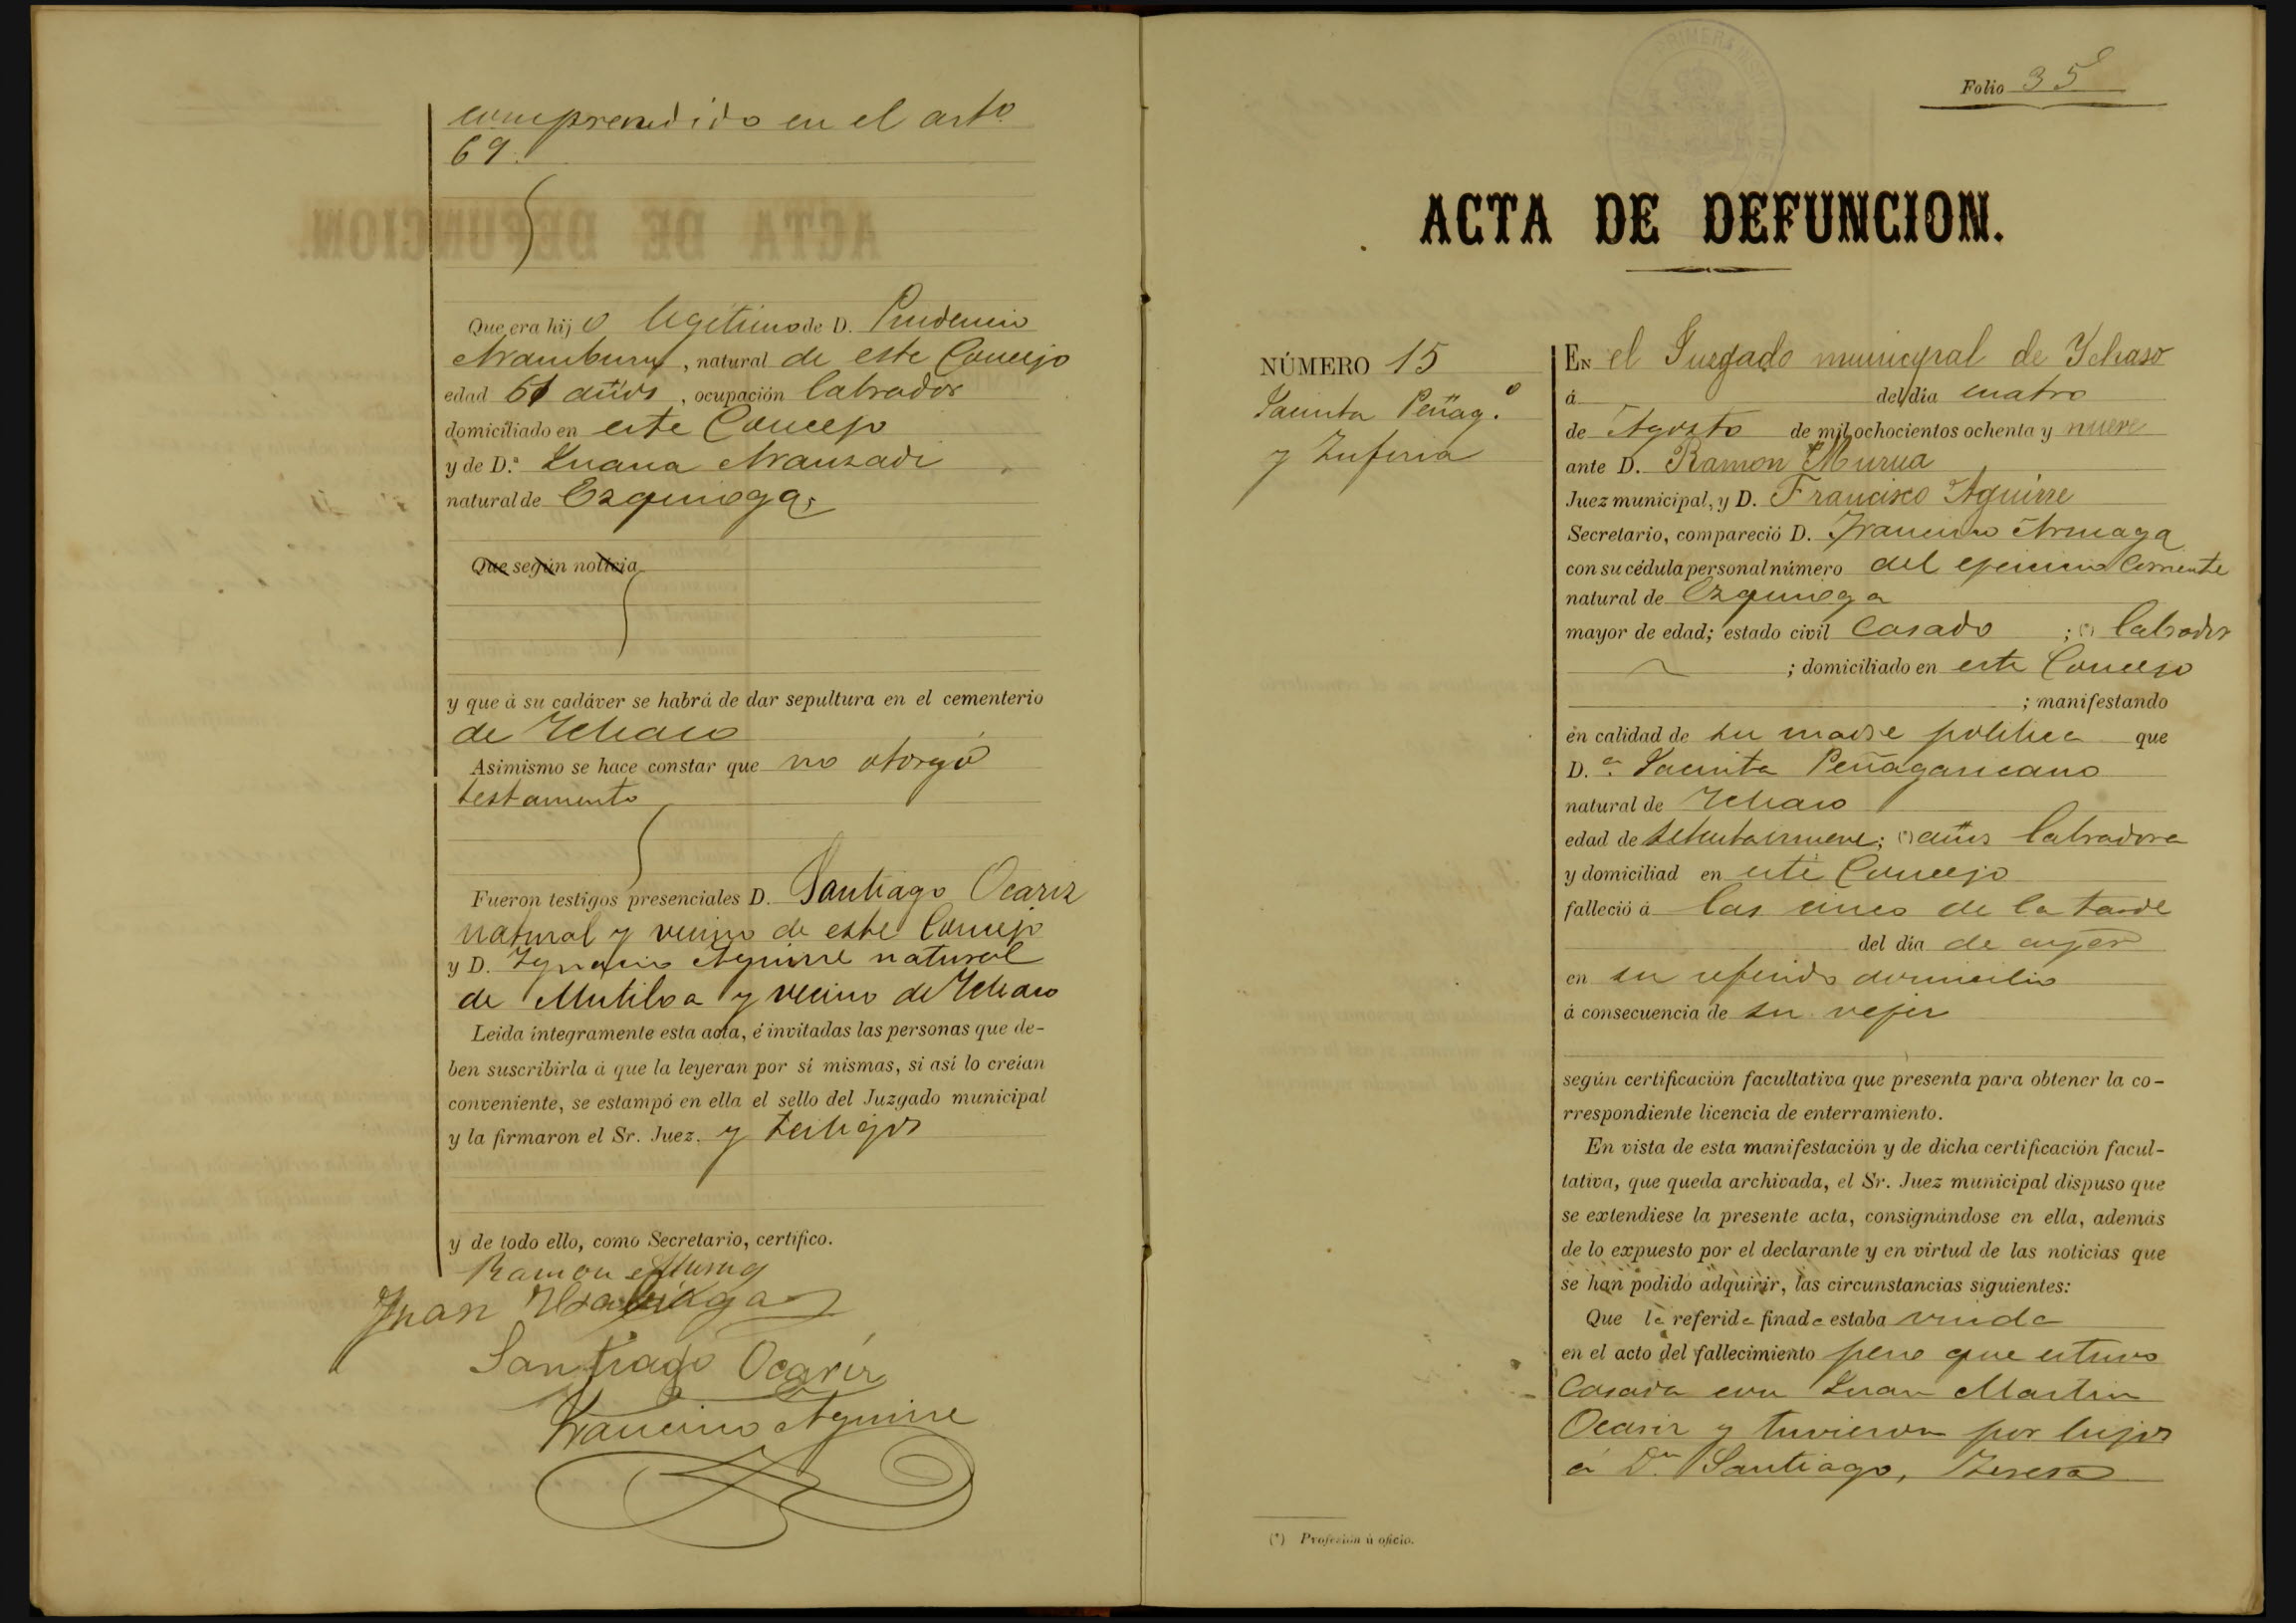 comprendido en el arto.
69.
Que era hijo legítimo de D. Prudencio
Aramburu, natural de este Concejo
edad 61 años, ocupación labrador
domiciliado en este Concejo
y de D.ª Juana Aranzadi
natural de Ezquioga,
Que según noticia
y que á su cadáver se habrá de dar sepultura en el cementerio
de Ichaso
Asimismo se hace constar que no otorgó
testamento
Fueron testigos presenciales D. Santiago Ocariz
natural y vecino de este Concejo
y D. Ygnacio Aguirre natural
de Mutiloa y vecino de Ychaso
Leida íntegramente esta acta, é invitadas las personas que de-
ben suscribirla á que la leyeran por sí mismas, si así lo creían
conveniente, se estampó en ella el sello del Juzgado municipal
y la firmaron el Sr. Juez. y testigos
y de todo ello, como Secretario, certifico.
Ramon Murua
Juan
Santiago Ocariz
Francisco Aguirre
Folio 35
ACTA DE DEFUNCION.
NÚMERO 15
Jacinta Peñag.º
y Zufiria
EN el Juzgado municipal de Ychaso
á del día cuatro
de Agosto de mil ochocientos ochenta y nueve
ante D. Ramon Murua
Juez municipal, y D. Francisco Aguirre
Secretario, compareció D. Francisco Arteaga
con su cédula personal número del ejercicio corriente
natural de Ezquioga
mayor de edad; estado civil casado ; (*) labrador
; domiciliado en este Concejo
; manifestando
en calidad de su madre política que
D.ª Jacinta Peñagaricano
natural de Ychaso
edad de setentainueve; (*) años labradora
y domiciliad en este Concejo
falleció á las cinco de la tarde
del día de ayer
en su referido domicilio
á consecuencia de su vejez
según certificación facultativa que presenta para obtener la co-
rrespondiente licencia de enterramiento.
En vista de esta manifestación y de dicha certificación facul-
tativa, que queda archivada, el Sr. Juez municipal dispuso que
se extendiese la presente acta, consignándose en ella, además
de lo expuesto por el declarante y en virtud de las noticias que
se han podido adquirir, las circunstancias siguientes:
Que la referida finada estaba viuda
en el acto del fallecimiento pero que estuvo
casada con Juan Martin
Ocariz y tuvieron por hijos
á Dn. Santiago, Teresa
(*) Profesión ú oficio.